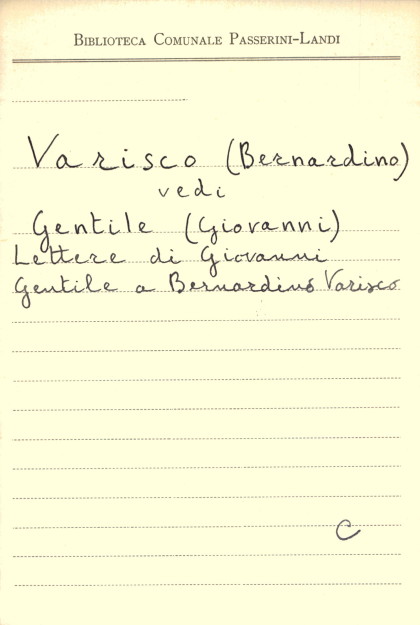 BIBLIOTECA COMUNALE PASSERINI-LANDI
Varisco (Bernardino)
vedi
Gentile (Giovanni)
Lettere di Giovanni
Gentile a Bernardino Varisco
C